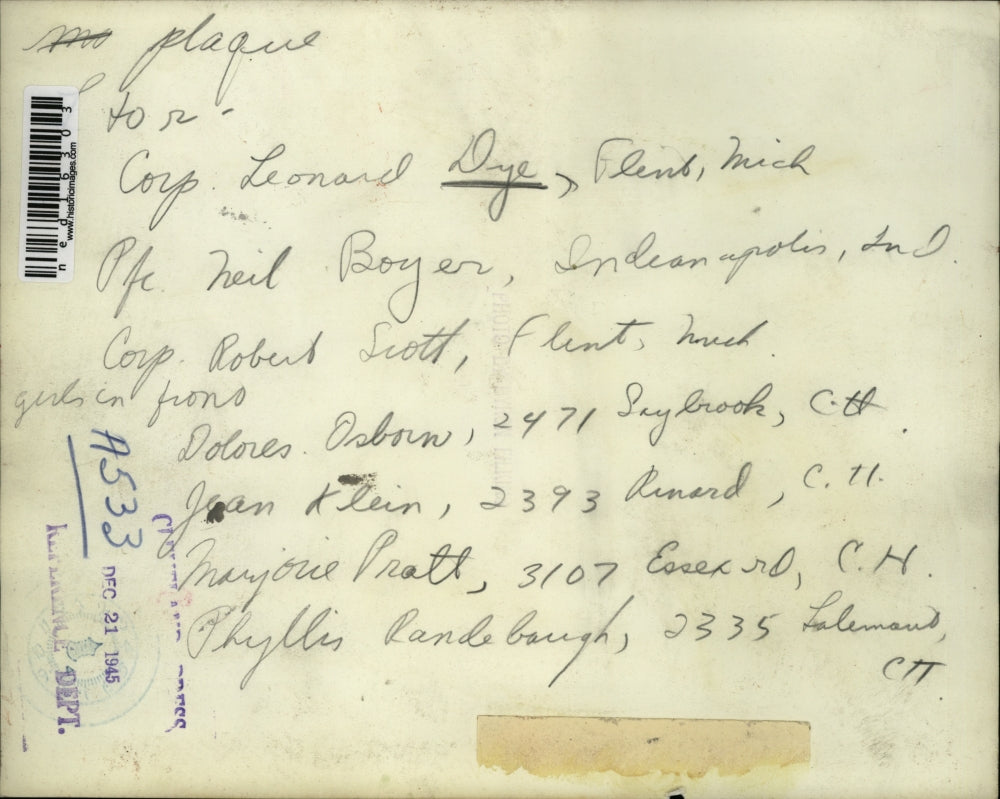 plaque
l to r -
Corp. Leonard Dye, Flint, Mich
Pfc. Neil Boyer, Indianapolis, Ind.
Corp. Robert Scott, Flint, Mich.
girls in front
Dolores Osborn, 2471 Saybrook, C.H.
Jean Klein, 2393 Rinard, C.H.
Marjorie Pratt, 3107 Essex rd, C.H.
Phyllis Randebaugh, 2335 Lalemand,
CH
A533
DEC 21 1945
REFERENCE DEPT.
CLEVELAND PRESS
www.historicimages.com